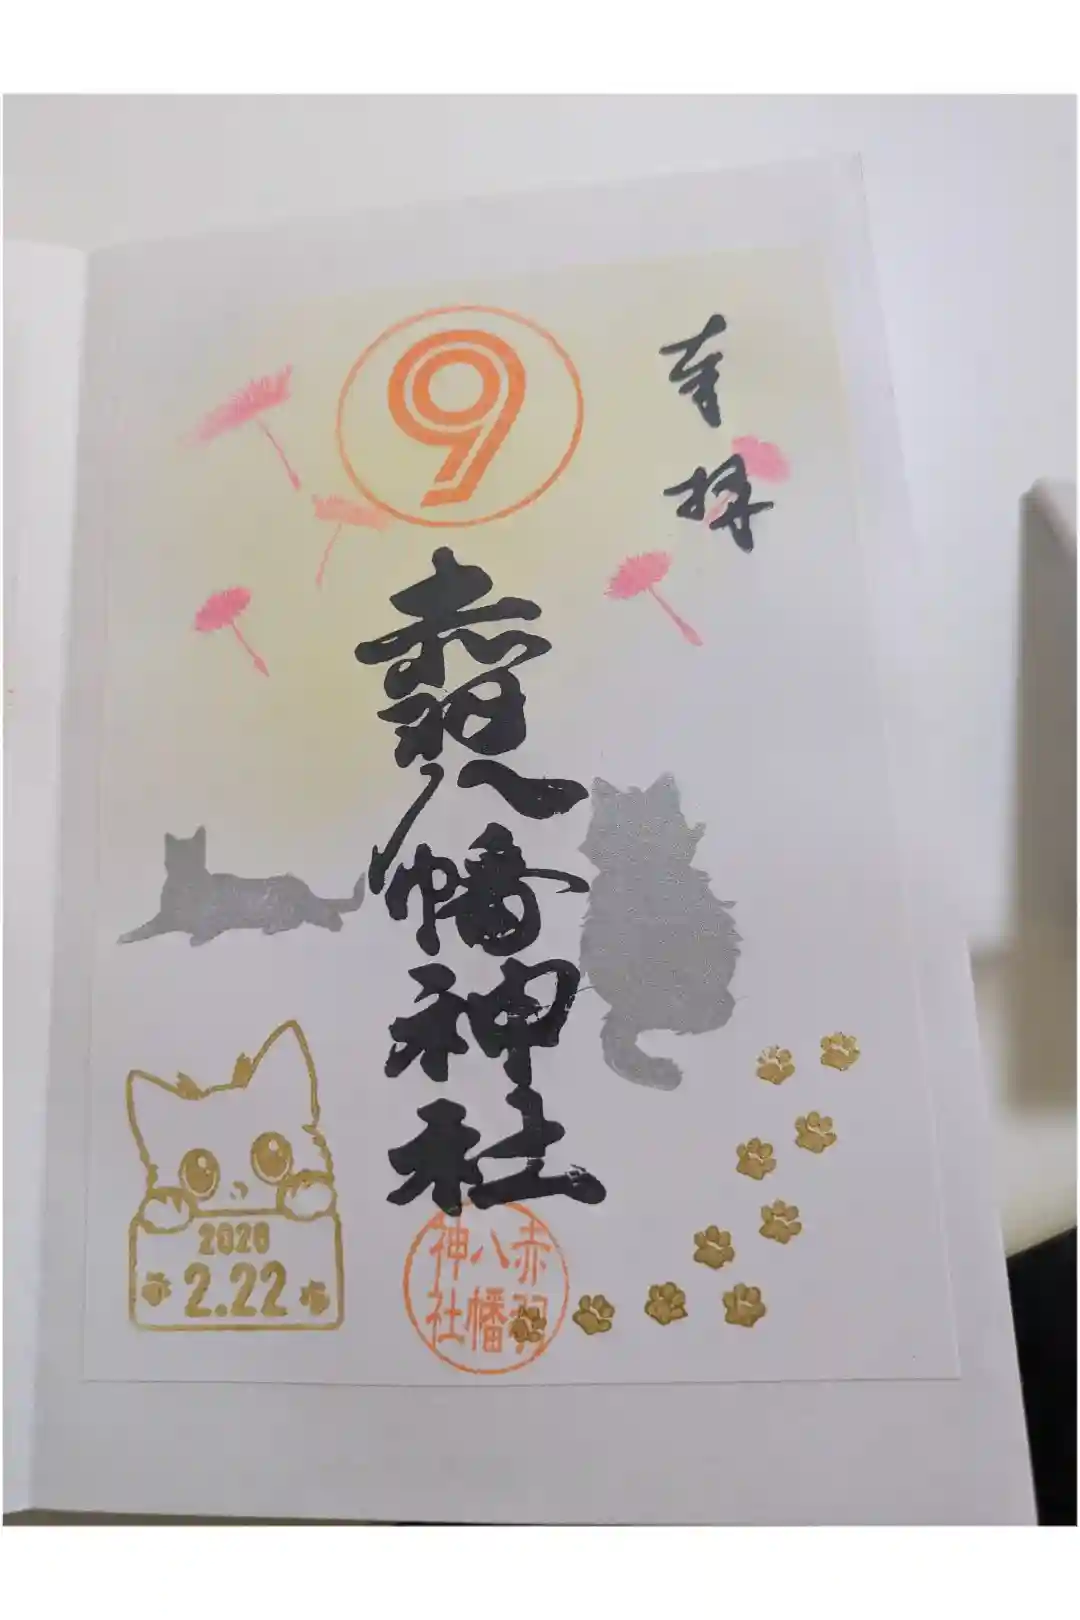 奉拝
9
赤羽八幡神社
2020
2.22
赤羽
八幡
神社